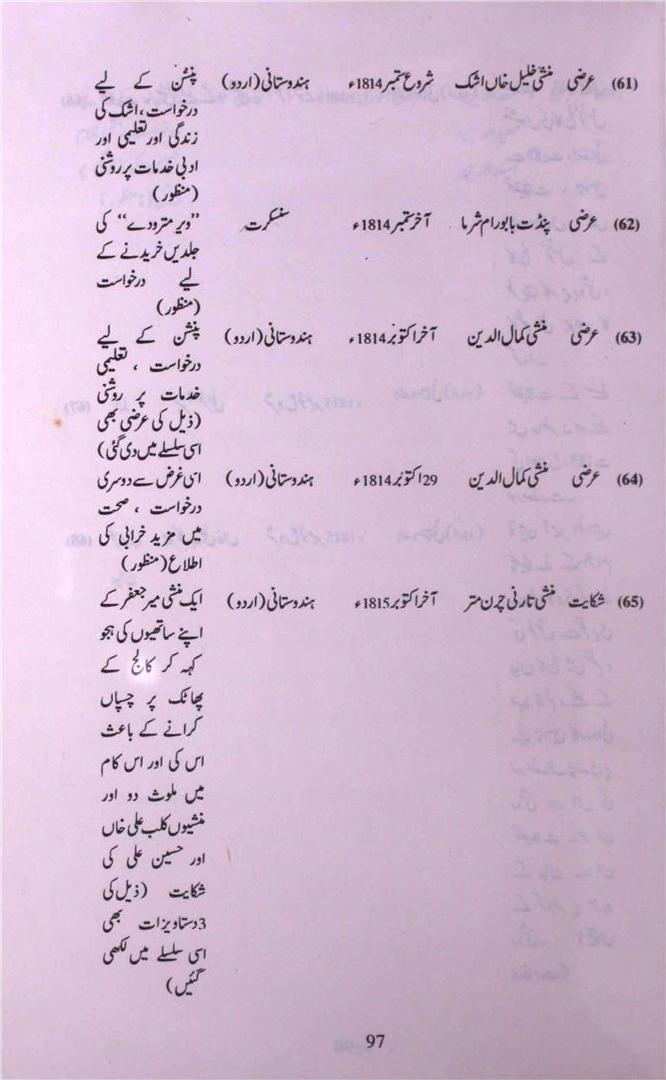 (61) عرضی منشی خلیل خاں اشک شروع ستمبر 1814ء ہندوستانی (اردو) پنشن کے لیے
درخواست، اشک کی
زندگی اور تعلیمی اور
ادبی خدمات پر روشنی
(منظور)
(62) عرضی پنڈت بابو رام شرما آخر ستمبر 1814ء سنسکرت ”ویر مترودے“ کی
جلدیں خریدنے کے
لیے درخواست
(منظور)
(63) عرضی منشی کمال الدین آخر اکتوبر 1814ء ہندوستانی (اردو) پنشن کے لیے
درخواست ، تعلیمی
خدمات پر روشنی
(ذیل کی عرضی بھی
اسی سلسلے میں دی گئی)
(64) عرضی منشی کمال الدین 29 اکتوبر 1814ء ہندوستانی (اردو) اسی غرض سے دوسری
درخواست ، صحت
میں مزید خرابی کی
اطلاع (منظور)
(65) شکایت منشی تارنی چرن متر آخر اکتوبر 1815ء ہندوستانی (اردو) ایک منشی میر جعفر کے
اپنے ساتھیوں کی ہجو
کہہ کر کالج کے
پھاٹک پر چسپاں
کرانے کے باعث
اس کی اور اس کام
میں ملوث دو اور
منشیوں کلب علی خاں
اور حسین علی کی
شکایت (ذیل کی
3 دستاویزات بھی
اسی سلسلے میں لکھی
گئیں)
97